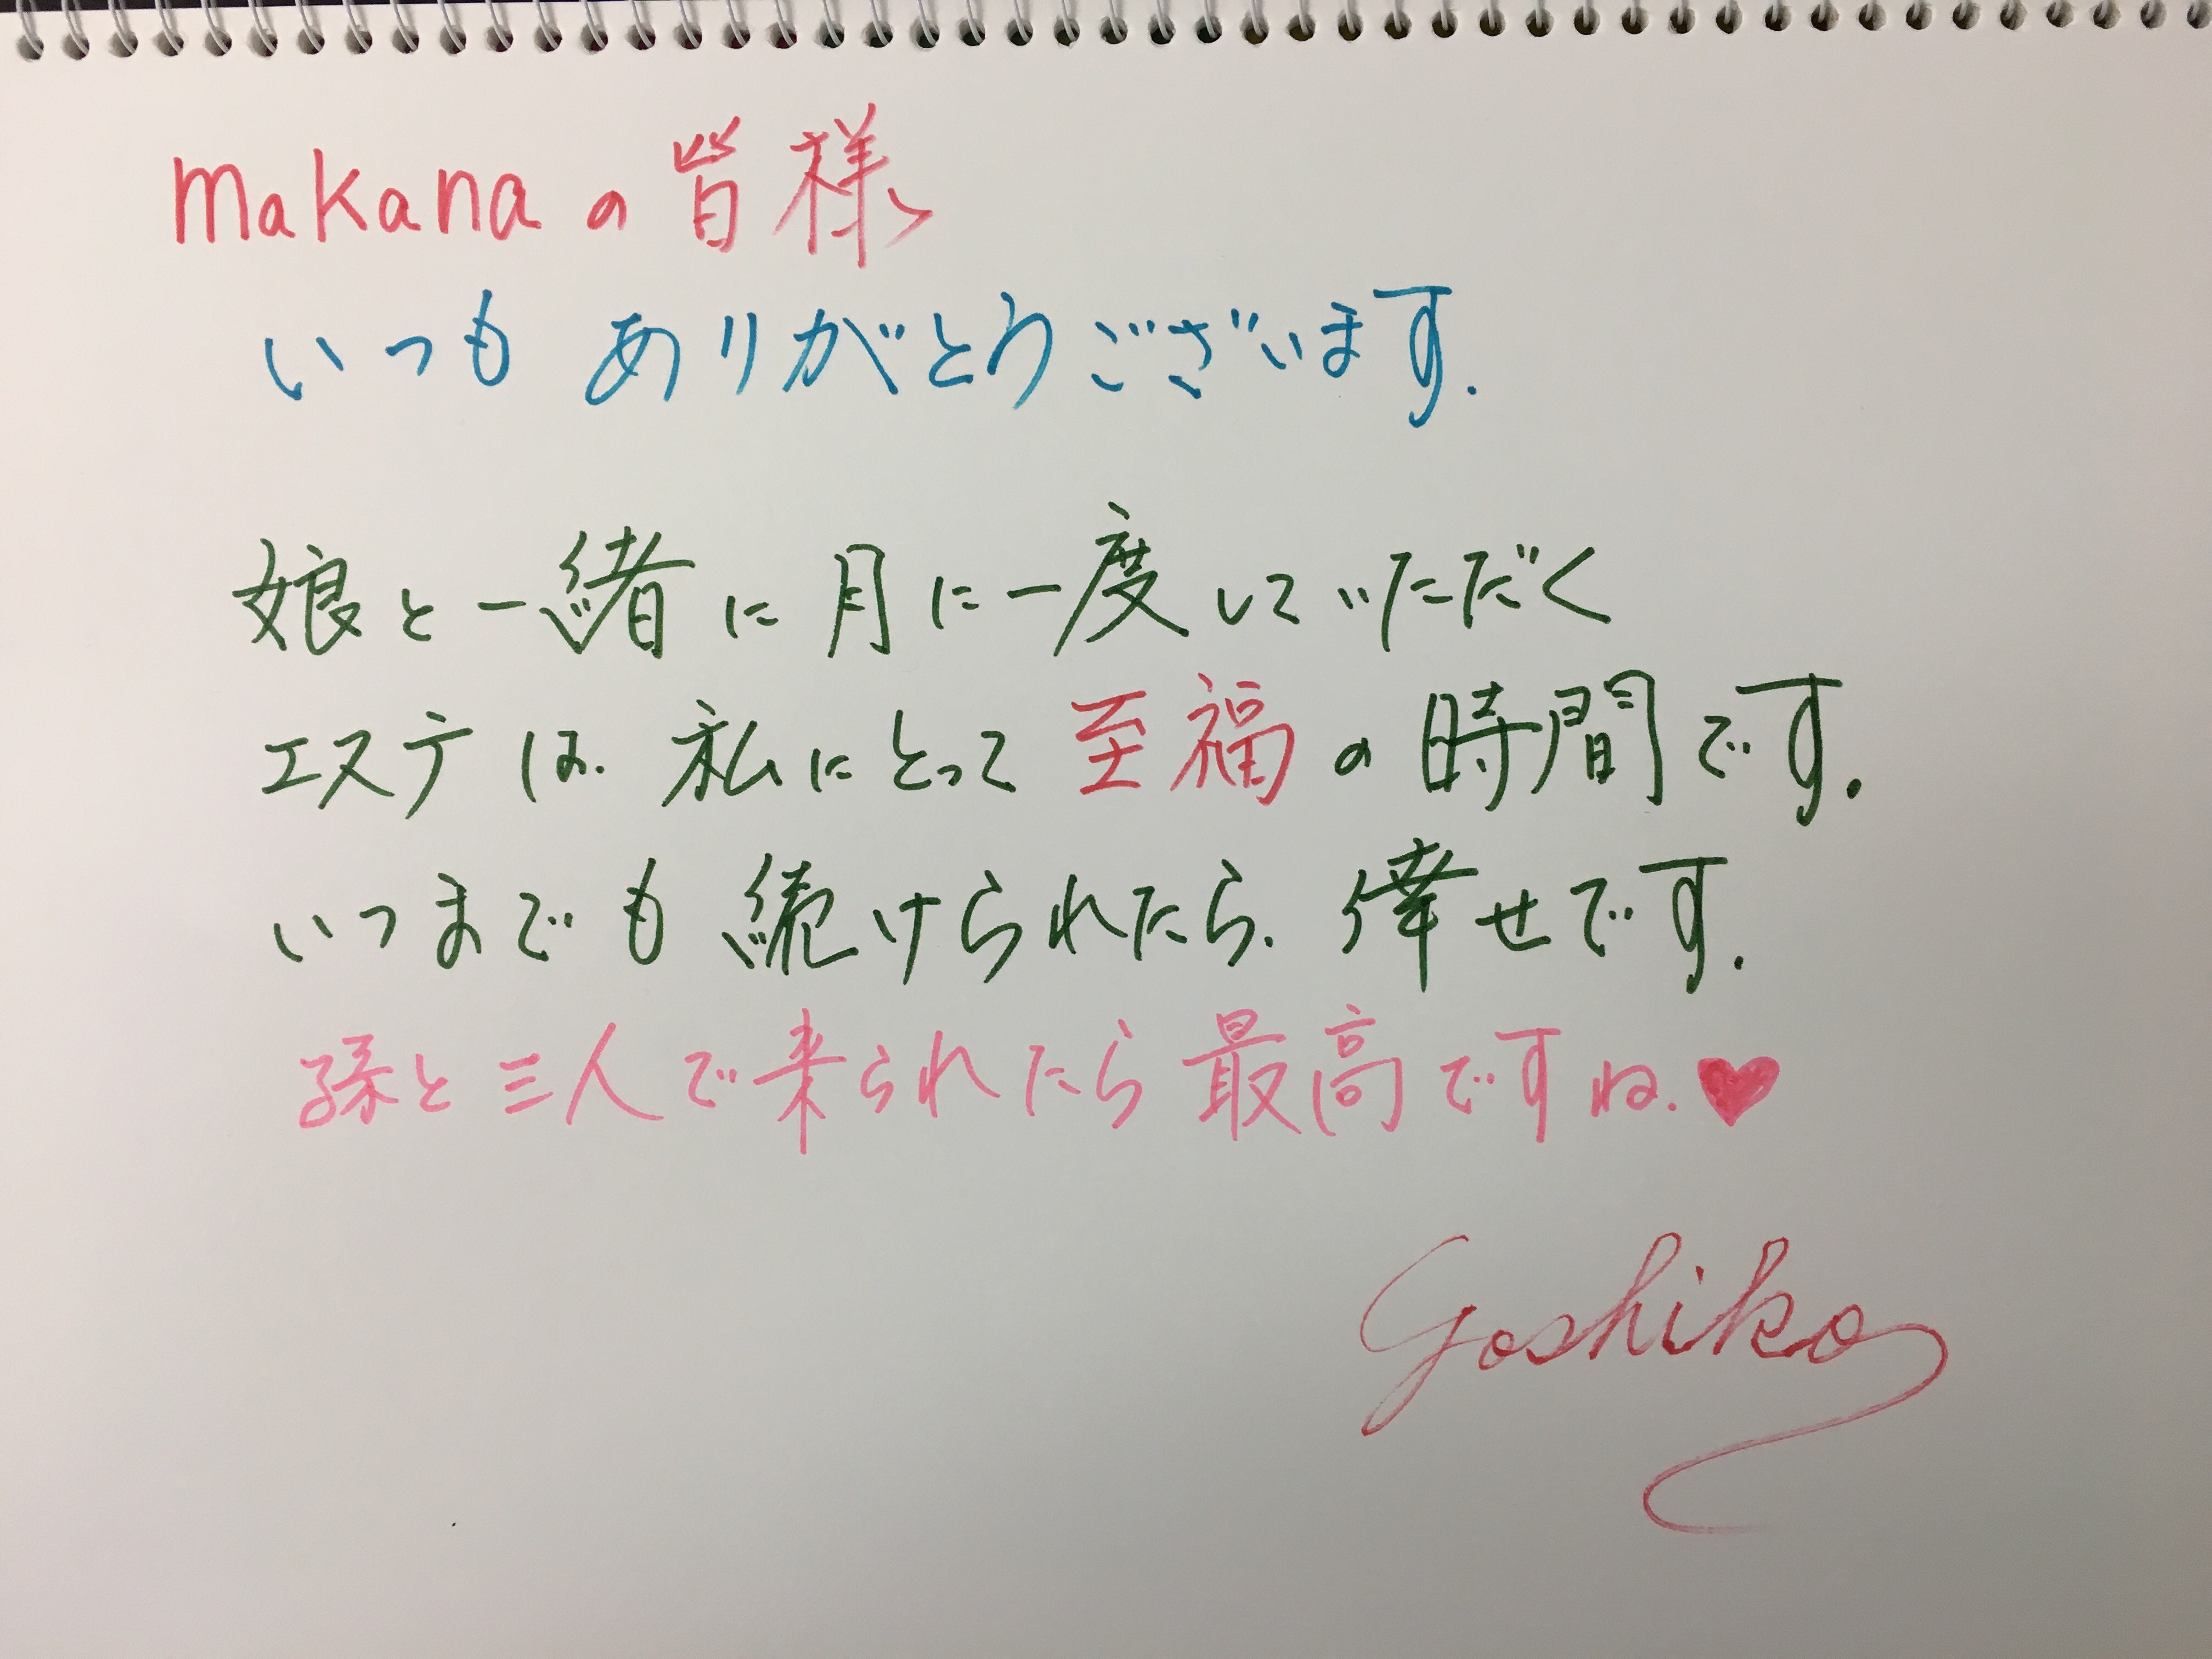 makanaの皆様
いつもありがとうございます.
娘と一緒に月に一度していただく
エステは. 私にとって至福の時間です.
いつまでも続けられたら. 倖せです.
孫と三人で来られたら最高ですね.♥
Yoshiko